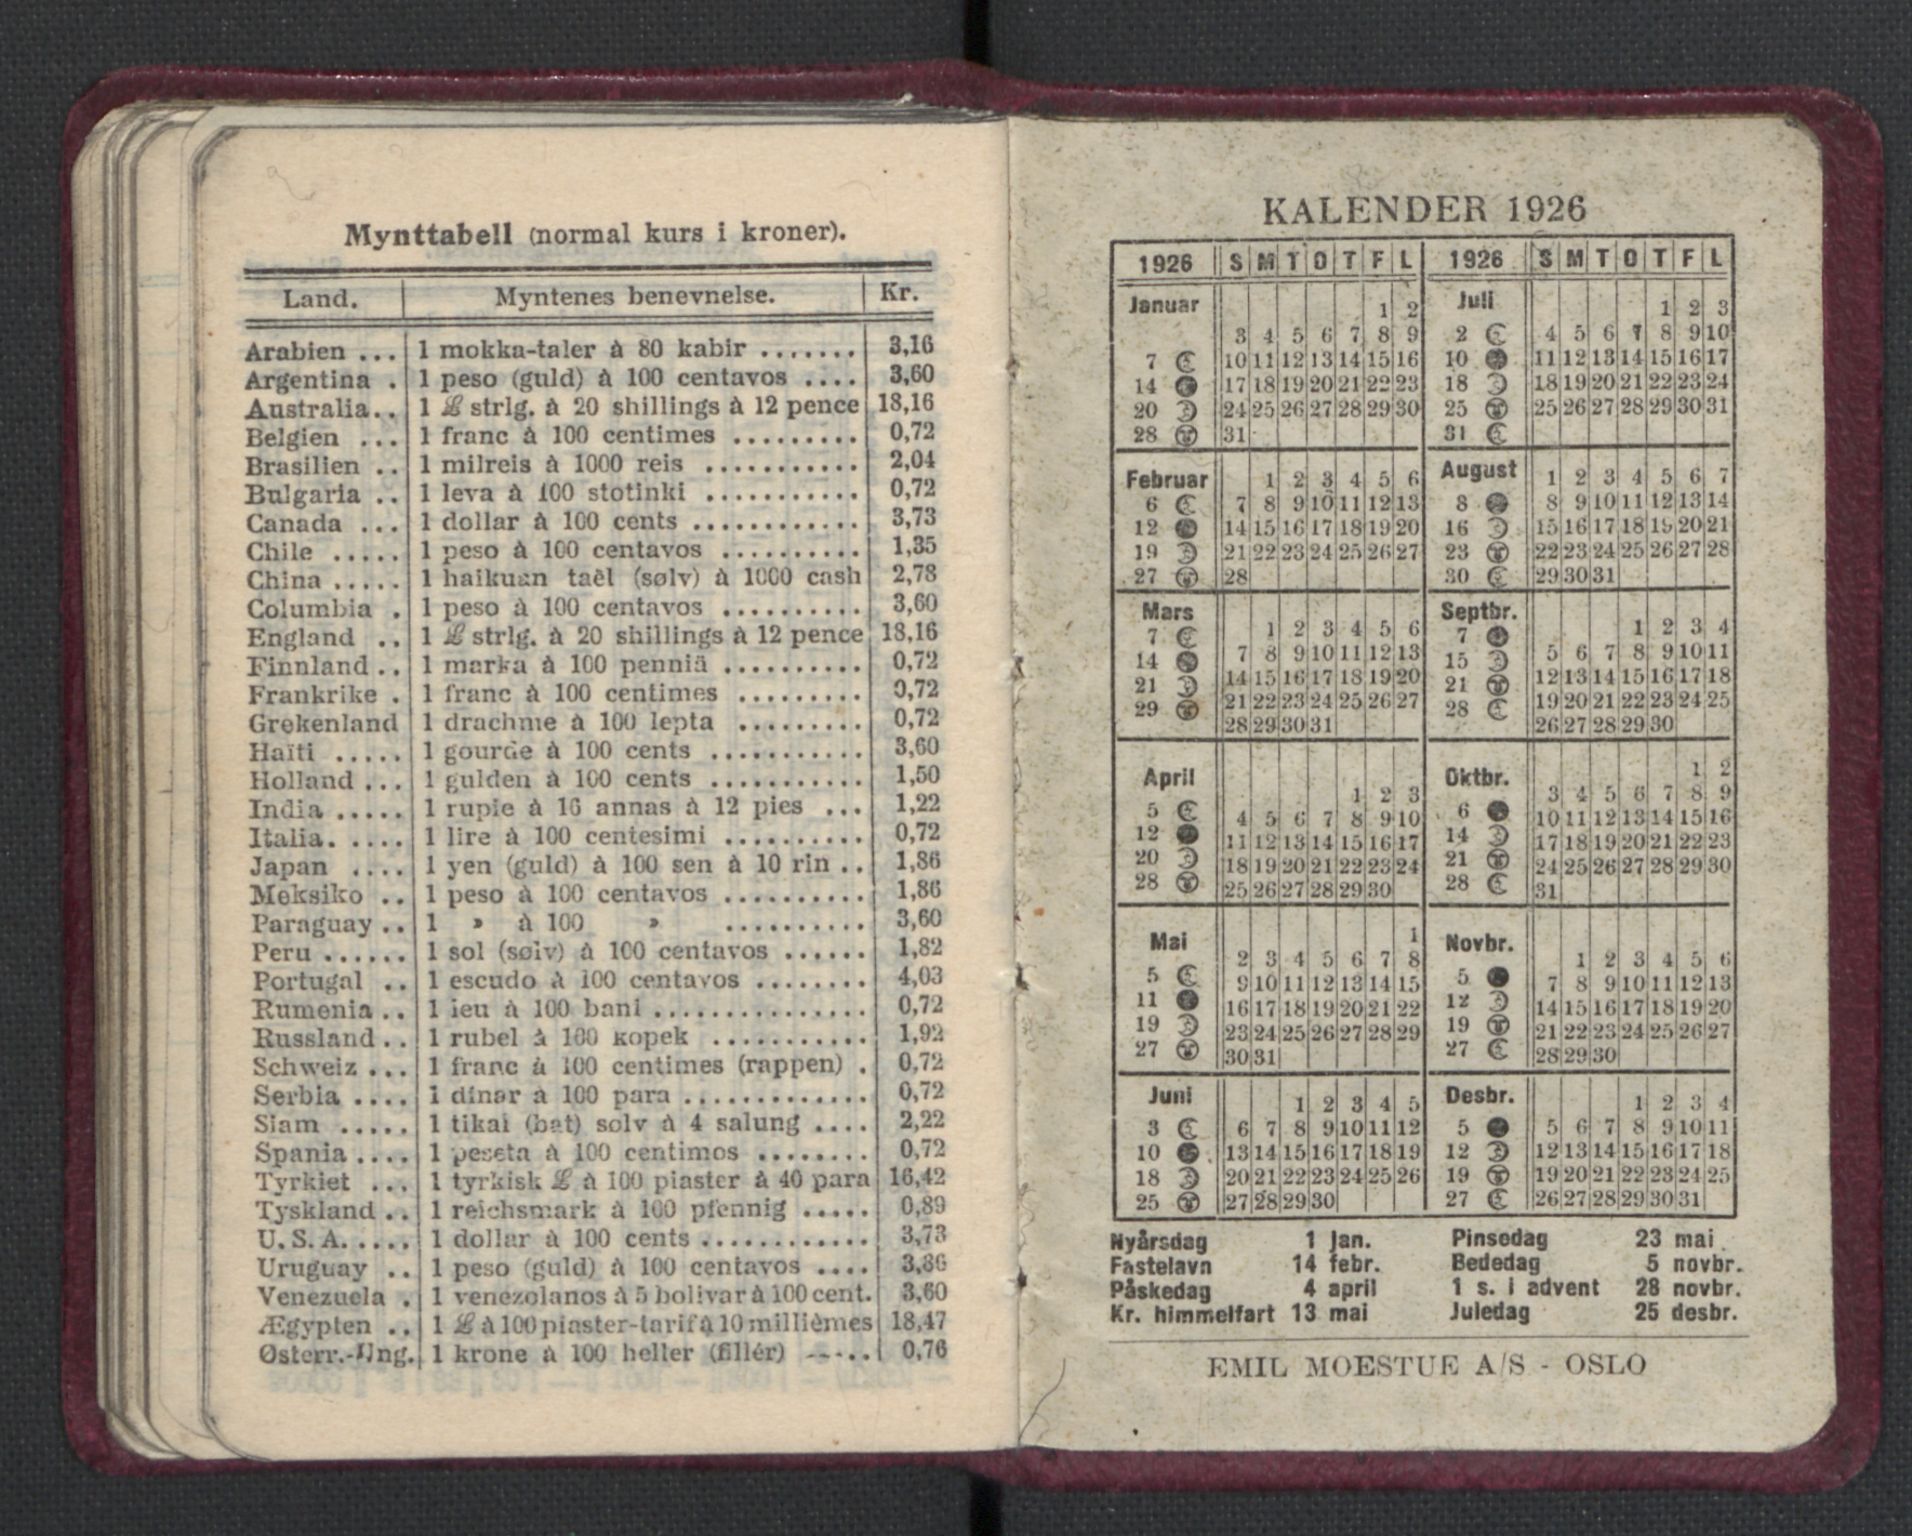 Mynttabell (normal kurs i kroner).
Land. Myntenes benevnelse. Kr.
Arabien ... 1 mokka-taler à 80 kabir ....... 3,16
Argentina . 1 peso (guld) à 100 centavos .... 3,60
Australia.. 1 £ strlg. à 20 shillings à 12 pence 18,16
Belgien ... 1 franc à 100 centimes ......... 0,72
Brasilien .. 1 milreis à 1000 reis ........... 2,04
Bulgaria .. 1 leva à 100 stotinki ........... 0,72
Canada ... 1 dollar à 100 cents ............ 3,73
Chile ..... 1 peso à 100 centavos .......... 1,35
China ..... 1 haikuan taël (sølv) à 1000 cash 2,78
Columbia . 1 peso à 100 centavos .......... 3,60
England .. 1 £ strlg. à 20 shillings à 12 pence 18,16
Finnland .. 1 marka à 100 penniä .......... 0,72
Frankrike . 1 franc à 100 centimes ......... 0,72
Grekenland 1 drachme à 100 lepta ......... 0,72
Haïti ..... 1 gourde à 100 cents ........... 3,60
Holland ... 1 gulden à 100 cents ........... 1,50
India ..... 1 rupie à 16 annas à 12 pies ... 1,22
Italia. .... 1 lire à 100 centesimi .......... 0,72
Japan .... 1 yen (guld) à 100 sen à 10 rin .. 1,86
Meksiko .. 1 peso à 100 centavos .......... 1,86
Paraguay .. 1 » à 100 » .......... 3,60
Peru ...... 1 sol (sølv) à 100 centavos ...... 1,82
Portugal .. 1 escudo à 100 centavos ........ 4,03
Rumenia .. 1 leu à 100 bani ............... 0,72
Russland .. 1 rubel à 100 kopek ........... 1,92
Schweiz ... 1 franc à 100 centimes (rappen) . 0,72
Serbia .... 1 dinar à 100 para ............. 0,72
Siam ..... 1 tikal (bat) sølv à 4 salung .... 2,22
Spania .... 1 peseta à 100 centimos ........ 0,72
Tyrkiet ... 1 tyrkisk £ à 100 piaster à 40 para 16,42
Tyskland .. 1 reichsmark à 100 pfennig ..... 0,89
U.S.A. .... 1 dollar à 100 cents ............ 3,73
Uruguay .. 1 peso (guld) à 100 centavos .... 3,86
Venezuela . 1 venezolanos à 5 bolivar à 100 cent. 3,60
Ægypten .. 1 £ à 100 piaster-tarif à 10 millièmes 18,47
Østerr.-Ung. 1 krone à 100 heller (fillér) ..... 0,76
KALENDER 1926
1926 S M T O T F L
Januar 1 2
3 4 5 6 7 8 9
7 10 11 12 13 14 15 16
14 17 18 19 20 21 22 23
20 24 25 26 27 28 29 30
28 31
Februar 1 2 3 4 5 6
6 7 8 9 10 11 12 13
12 14 15 16 17 18 19 20
19 21 22 23 24 25 26 27
27 28
Mars 1 2 3 4 5 6
7 7 8 9 10 11 12 13
14 14 15 16 17 18 19 20
21 21 22 23 24 25 26 27
29 28 29 30 31
April 1 2 3
5 4 5 6 7 8 9 10
12 11 12 13 14 15 16 17
20 18 19 20 21 22 23 24
28 25 26 27 28 29 30
Mai 1
2 3 4 5 6 7 8
5 9 10 11 12 13 14 15
11 16 17 18 19 20 21 22
19 23 24 25 26 27 28 29
27 30 31
Juni 1 2 3 4 5
3 6 7 8 9 10 11 12
10 13 14 15 16 17 18 19
18 20 21 22 23 24 25 26
25 27 28 29 30
1926 S M T O T F L
Juli 1 2 3
2 4 5 6 7 8 9 10
10 11 12 13 14 15 16 17
18 18 19 20 21 22 23 24
25 25 26 27 28 29 30 31
31
August 1 2 3 4 5 6 7
8 8 9 10 11 12 13 14
16 15 16 17 18 19 20 21
23 22 23 24 25 26 27 28
30 29 30 31
Septbr. 1 2 3 4
7
15 5 6 7 8 9 10 11
21 12 13 14 15 16 17 18
28 19 20 21 22 23 24 25
26 27 28 29 30
Oktbr. 1 2
3 4 5 6 7 8 9
6 10 11 12 13 14 15 16
14 17 18 19 20 21 22 23
21 24 25 26 27 28 29 30
28 31
Novbr. 1 2 3 4 5 6
5 7 8 9 10 11 12 13
12 14 15 16 17 18 19 20
19 21 22 23 24 25 26 27
27 28 29 30
Desbr. 1 2 3 4
5 5 6 7 8 9 10 11
12 12 13 14 15 16 17 18
19 19 20 21 22 23 24 25
27 26 27 28 29 30 31
Nyårsdag 1 jan. Pinsedag 23 mai
Fastelavn 14 febr. Bededag 5 novbr.
Påskedag 4 april 1 s. i advent 28 novbr.
Kr. himmelfart 13 mai Juledag 25 desbr.
EMIL MOESTUE A/S - OSLO